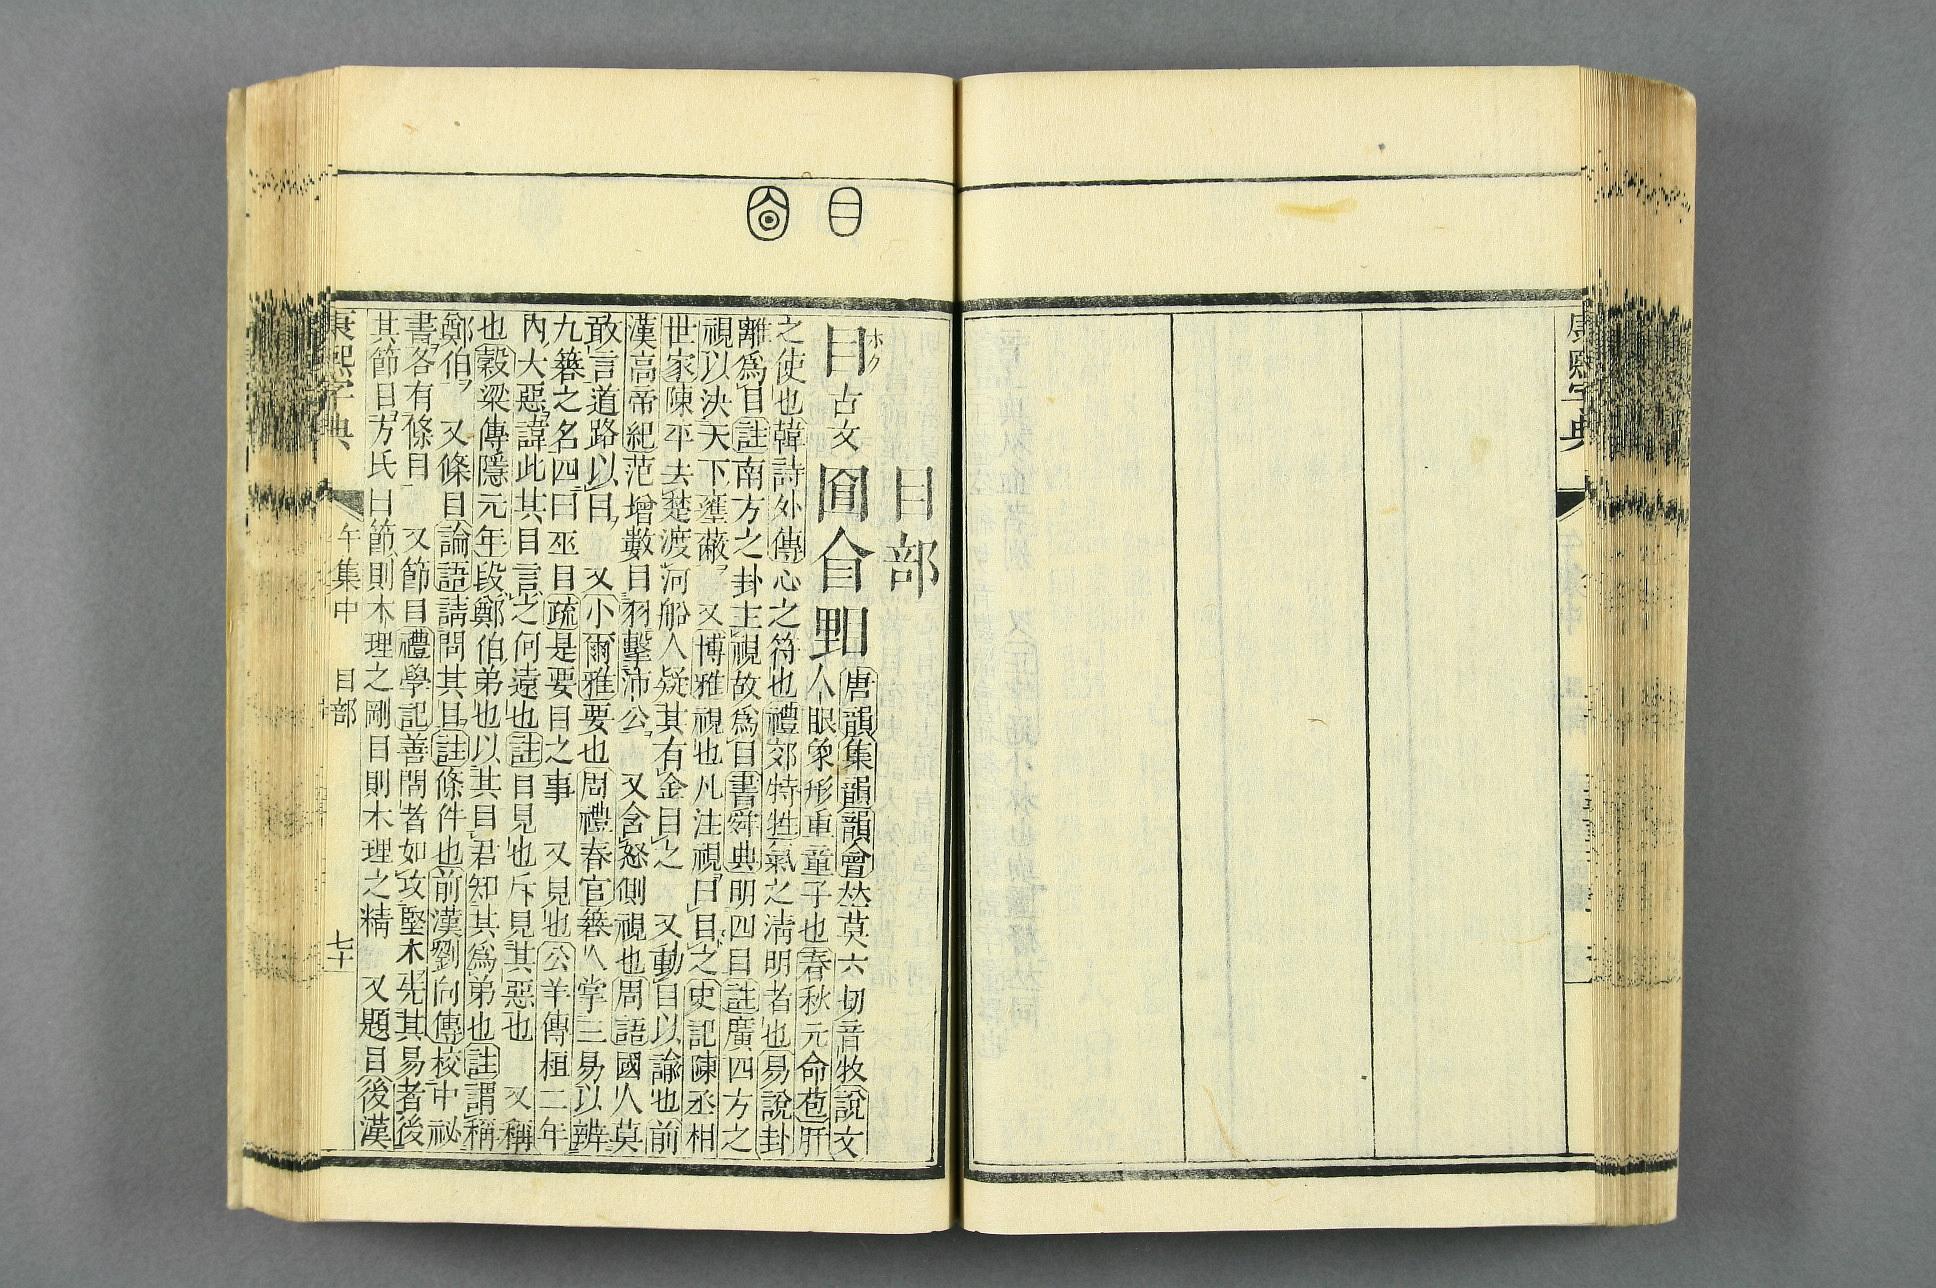 康熙字典
目部
目古文
ホク
唐韻集韻韻會𠀤莫六切音牧說文
人眼象形重童子也春秋元命苞肝
之使也韓詩外傳心之符也禮郊特牲氣之淸明者也易說卦
離爲目註南方之卦主視故爲目書舜典明四目註廣四方之
視以決天下壅蔽 又博雅視也凡注視曰目之史記陳丞相
世家陳平去楚渡河船人疑其有金目之 又動目以諭也前
漢高帝紀范增數目羽擊沛公 又含怒側視也周語國人莫
敢言道路以目 又小爾雅要也周禮春官簭人掌三易以辨
九簭之名四曰巫目疏是要目之事 又見也公羊傳桓二年
內大惡諱此其目言之何遠也註目見也斥見其惡也 又稱
也穀梁傳隱元年段鄭伯弟也以其目君知其爲弟也註謂稱
鄭伯 又條目論語請問其目註條件也前漢劉向傳校中祕
書各有條目 又節目禮學記善問者如攻堅木先其易者後
其節目方氏曰節則木理之剛目則木理之精 又題目後漢
康熙字典 午集中 目部 七十